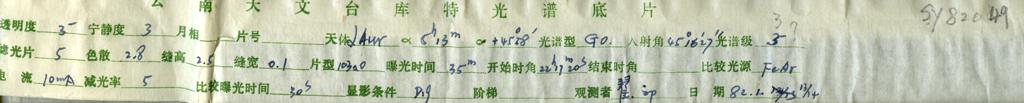 云南天文台库特光谱底片 SY82049
透明度 3 宁静度 3 月相 片号 天体 αAur α 5h13m +45°58′ 光谱型 G0 入射角 45°16′27″ 光谱级 3
滤光片 5 色散 2.8 缝高 2.5 缝宽 0.1 片型 103aO 曝光时间 35m 开始时角 22h17m20s 结束时角 比较光源 FeAr
电流 10mA 减光率 5 比较曝光时间 30s 显影条件 D19 阶梯 观测者 日期 82.1.